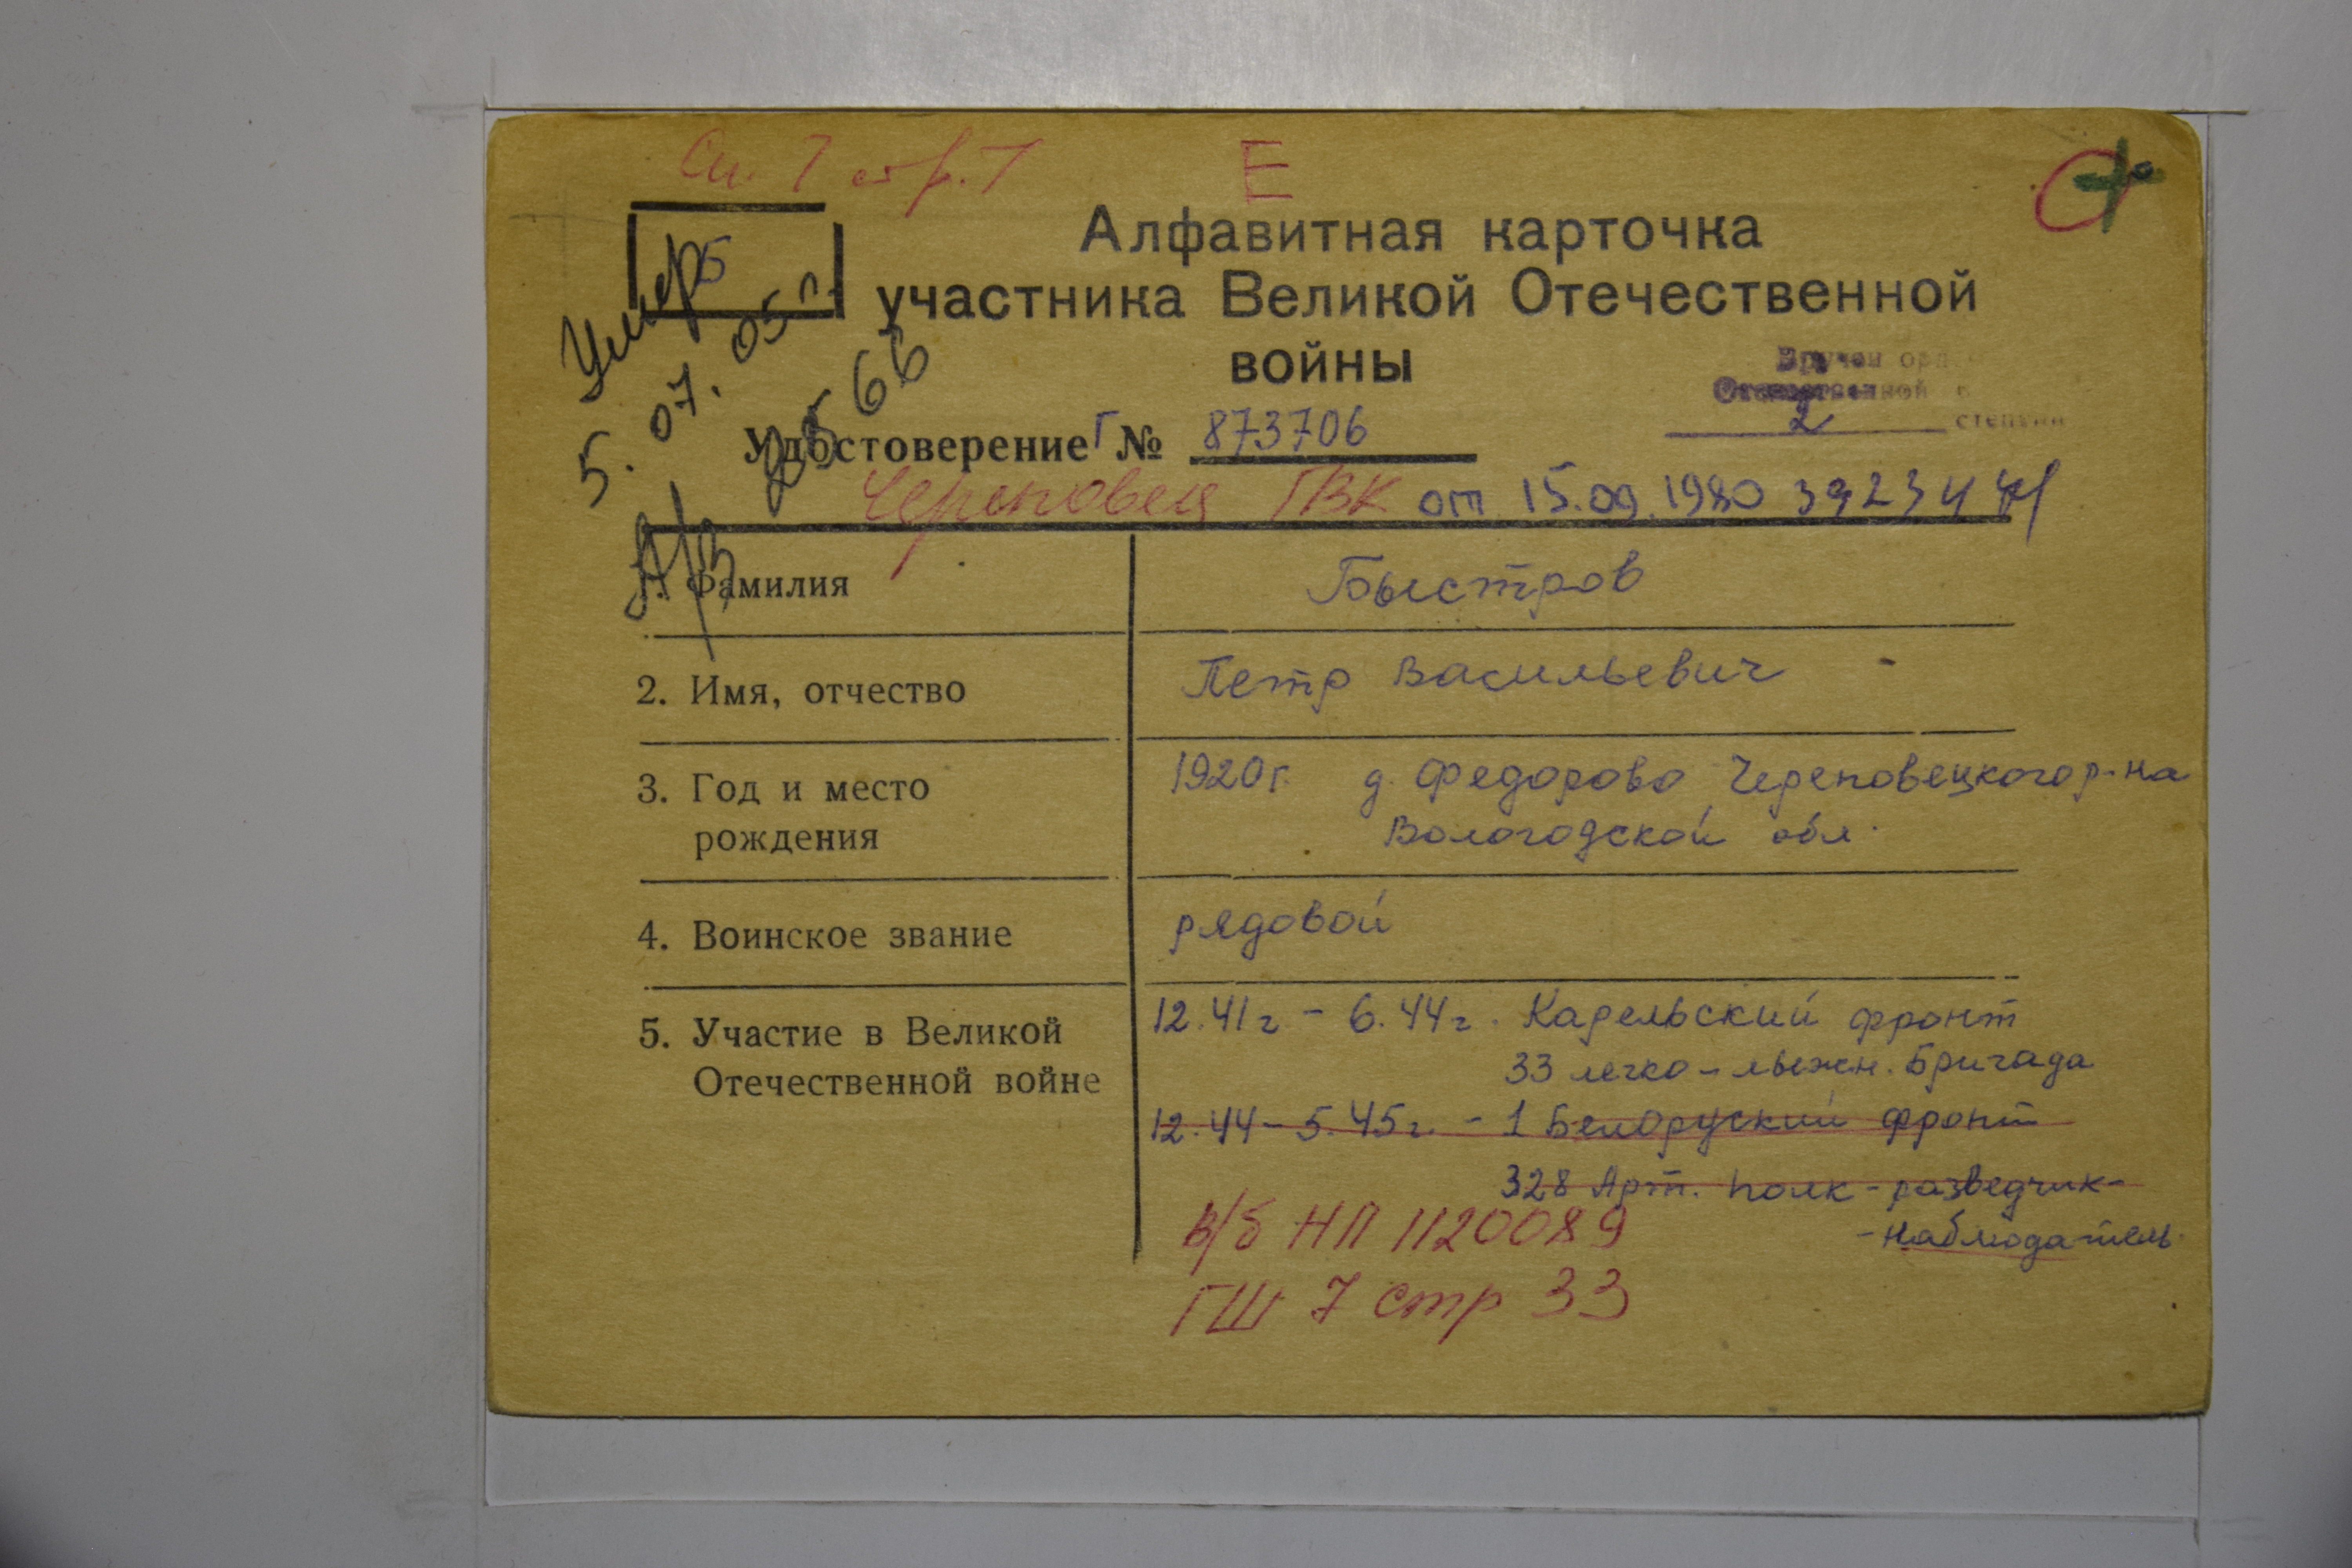 См. 7 стр. 7
Е
Б
Умер
5. 07. 05 г.
А/З 2566
Алфавитная карточка
участника Великой Отечественной
войны
Вручен орд
Отечественной в
2 степени
Удостоверение Г № 873706
Череповец ГВК от 15.09.1980
1. Фамилия
Быстров
2. Имя, отчество
Петр Васильевич
3. Год и место
рождения
1920г. д. Федорово Череповецкого р-на
Вологодской обл.
4. Воинское звание
рядовой
5. Участие в Великой
Отечественной войне
12.41г - 6.44г. Карельский фронт
33 легко-лыжн. Бригада
12.44-5.45г. - 1 Белоруский фронт
328 Арт. полк - разведчик-
-наблюдатель.
в/б НП 1120089
ГШ 7 стр 33